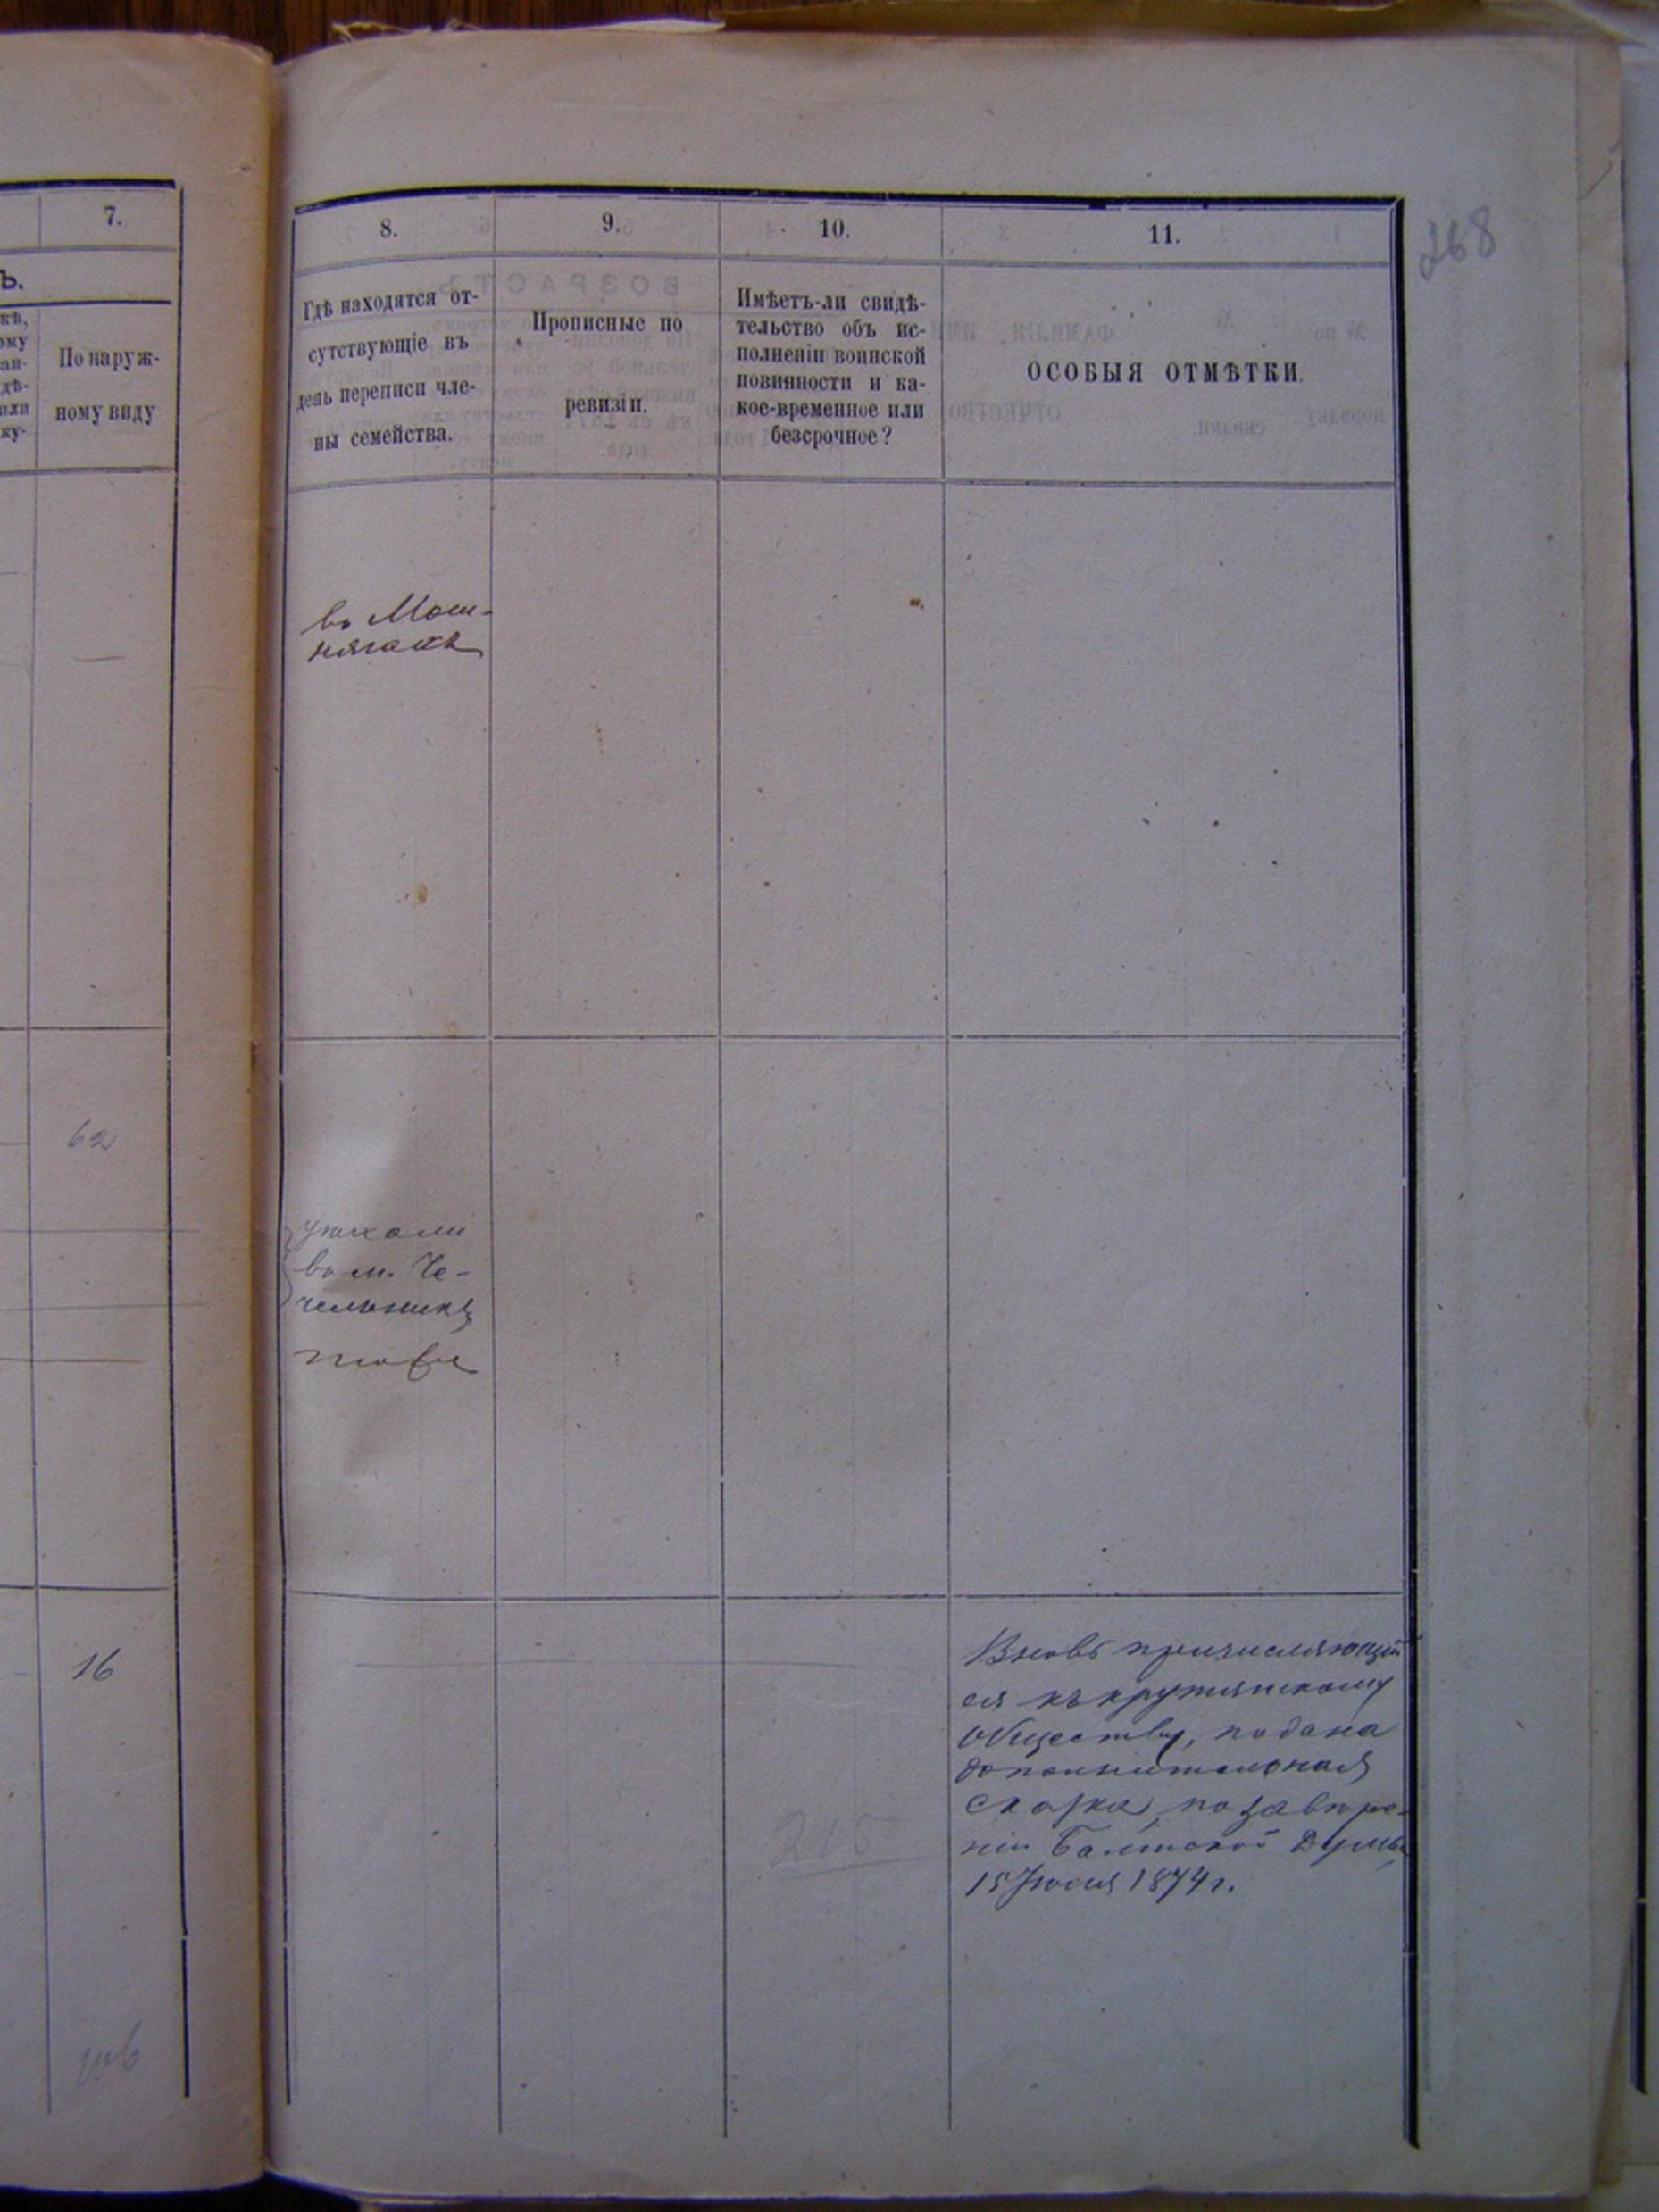 7.
ъ.
кѣ,
ому
ан-
дѣ-
или
ку-
По наруж-
ному виду
62
16
268
8.
9.
10.
11.
Гдѣ находятся от-
сутствующіе въ
день переписи чле-
ны семейства.
Прописные по
ревизіи.
Имѣетъ-ли свидѣ-
тельство объ ис-
полненіи воинской
повинности и ка-
кое-временное или
безсрочное?
ОСОБЫЯ ОТМѢТКИ.
въ Мош-
нягахъ
въ м. Че-
чельникѣ
тоже
215
Вновь причисляющій
ся къ крутянскому
обществу, подана
дополнительная
сказка, по завѣре-
нію Балтской Думы,
15 Іюля 1874 г.